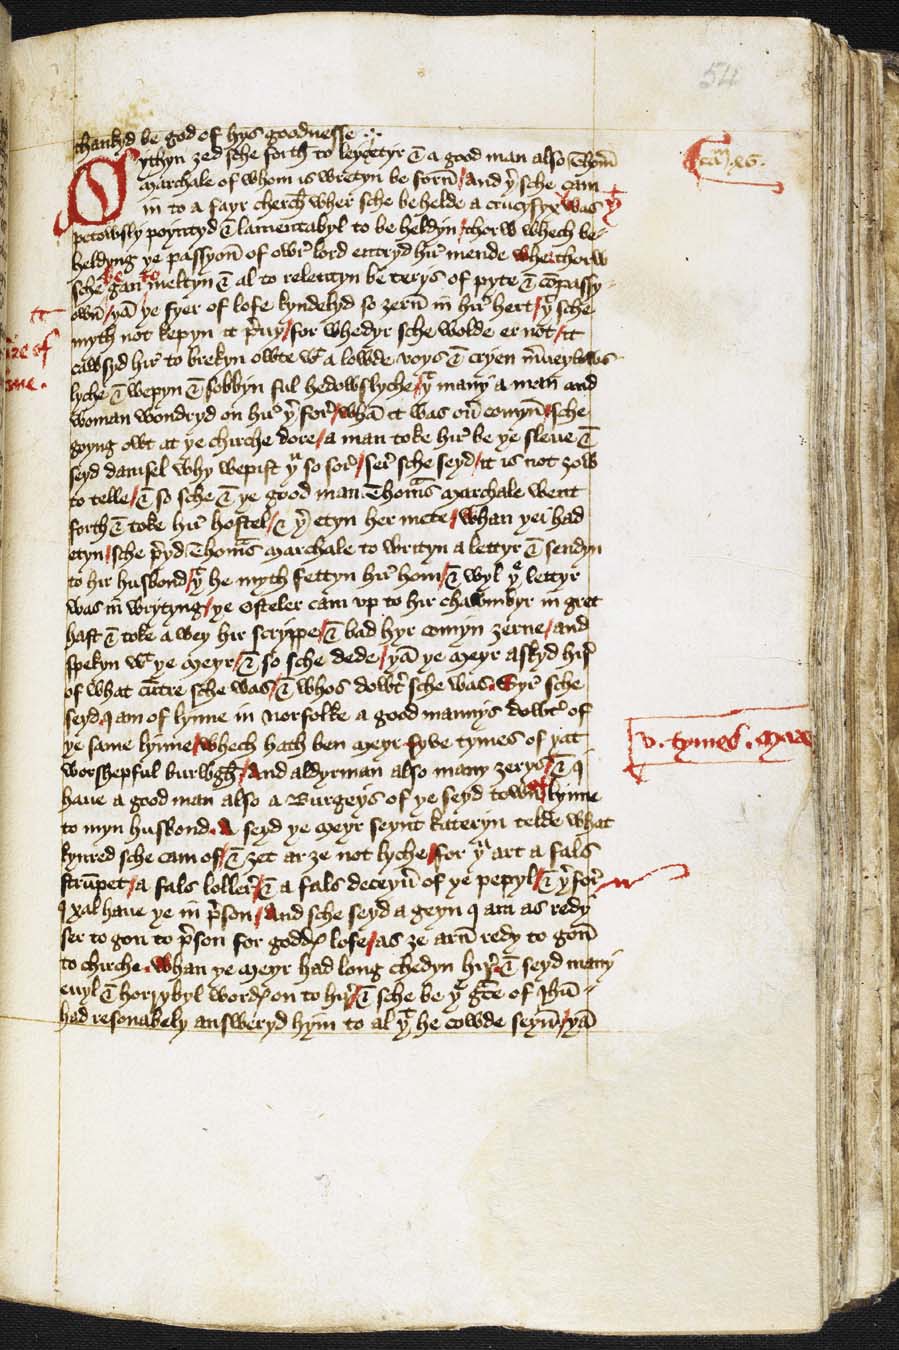 54
thankyd be god of hys goodnesse
Sythyn zed sche forth to leycetyr & a good man also Thom̄
Marchale of whom is wretyn be forn̄ / And yͬ sche cam
in to a fayr cherch wher sche behelde a crucyfyx was
petowsly poyntyd & lamentabyl to be heldyn / thorw whech be
heldyng ye passyon̄ of owr̄ lord entryd hir̄ mende wher thorw
sche gan meltyn & al to relentyn be terys of pyte & cōpassy
be to
own̄ / yā ye fyer of lofe kyndelyd so zern̄ in hir̄ hert / yͭ sche
myth not kepyn it p̄uy / for whedyr sche wolde er not / it
cawsyd hir̄ to brekyn owte wͭ a lowde voys & cryen m̄ueylows
lyche & wepyn & sobbyn ful hedowslyche / yͭ many a man and
woman wondryd on hir̄ yͬ for̄ / whā it was ou̅ comyn̄ / sche
goyng owt at ye chirche dore / a man toke hir̄ be ye sleue &
seyd damsel why wepist yͧ so sor̄ / ser̄ sche seyd / it is not zow
to telle / & so sche & ye good man Thom̄s Marchale went
forth & toke hir̄ hostel / & yͬ etyn her mete / whan yei had
etyn / sche p̄yd Thom̄s Marchale to writyn a lettyr & sendyn
to hir husbond / yͭ he myth fettyn hir̄ hom / & wyl yͤ lettyr
was in wrytyng / ye osteler cam vp to hir chawmbyr in gret
hast & toke a wey hir scryppe / & bad hyr comyn zerne / and
spekyn wͭ ye Meyr / & so sche dede / yā ye Meyr askyd hir̄
of what cūtre sche was / & whos dowt̄ sche was . Syr̄ sche
seyd I am of lynne in Norfolke a good mannys dowt̄ of
ye same lynne / whech hath ben Meyr fyve tymes of yat
worshepful burwgh / And aldyrman also many zerys / & I
haue a good man also a Burgeys of ye seyd town̄ / lynne
to myn husbond . A seyd ye Meyr seynt kateryn telde what
kynred sche cam of / & zet ar ze not lyche / for yͧ art a fals
strūpet / a fals loller̄ / & a fals deceyu̅ of ye pepyl / & yͬ for̄
I xal haue ye in p̄son / And sche seyd a geyn I am as redy
ser to gon to p̄son for goddꝭ lofe / as ze arn̄ redy to gon̄
to chirche . whan ye Meyr had long chedyn hir̄ & seyd many
euyl & horrybyl wordꝭ on to hir̄ / & sche be yͤ gc̄e of Ihū
had resonabely answeryd hym to al yͭ he cowde seyn̄ / yā
fire of
v. tymes . Mae